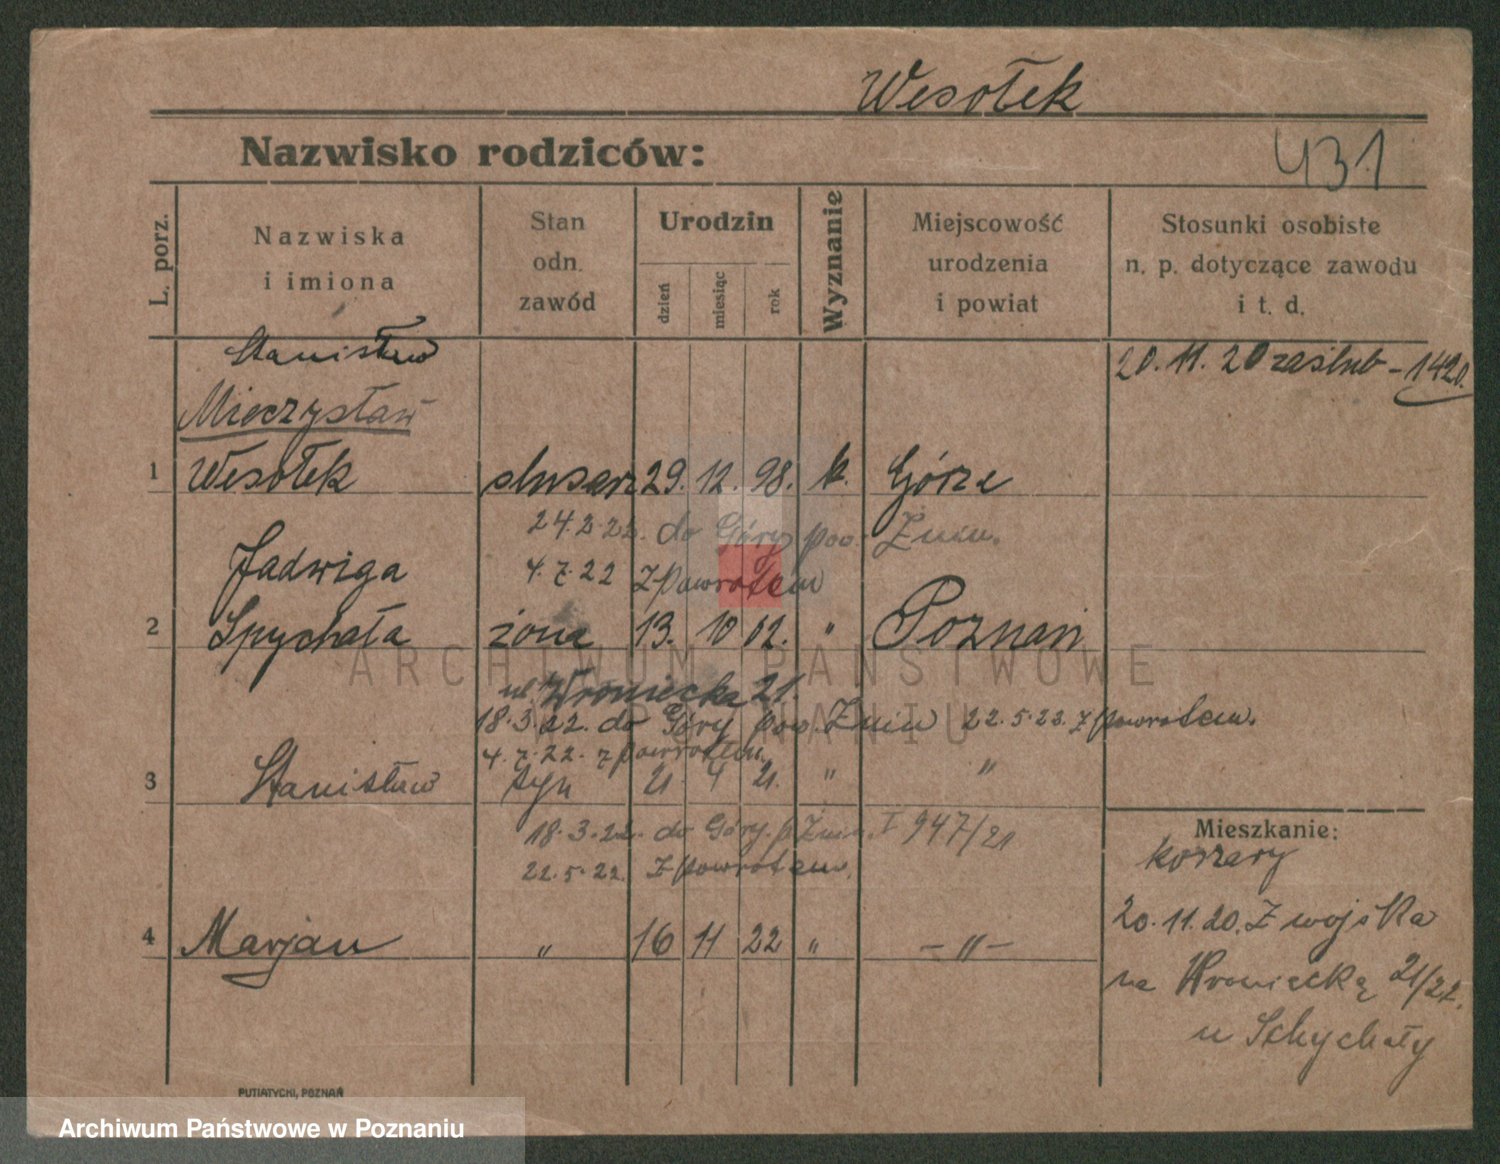 Wesołek
Nazwisko rodziców:
431
L. porz.
Nazwiska
i imiona
Stan
odn.
zawód
Urodzin
dzień
miesiąc
rok
Wyznanie
Miejscowość
urodzenia
i powiat
Stosunki osobiste
n. p. dotyczące zawodu
i t. d.
Stanisław
20. 11. 20 zaślub - 1420.
Mieczysław
1 Wesołek ślusarz 29. 12. 98. k. Górze
24. 2. 22. do Góry pow. Żnin.
Jadwiga
4. 7. 22 z powrotem
2 Spychała żona 13. 10 02. " Poznań
ARCHIWUM PAŃSTWOWE
W POZNANIU
ul. Wroniecka 21.
18. 3. 22. do Góry pow. Żnin 22. 5. 22. z powrotem.
4. 7. 22. z powrotem.
3 Stanisław syn 21. 4 21. " "
18. 3. 22. do Góry. p. Żnin. I 947/21
22. 5. 22. z powrotem.
4 Marjan " 16 11 22 " - " -
Mieszkanie:
koszary
20. 11. 20. Z wojska
na Wroniecką 21/22.
u Schychały
PUTIATYCKI, POZNAŃ
Archiwum Państwowe w Poznaniu